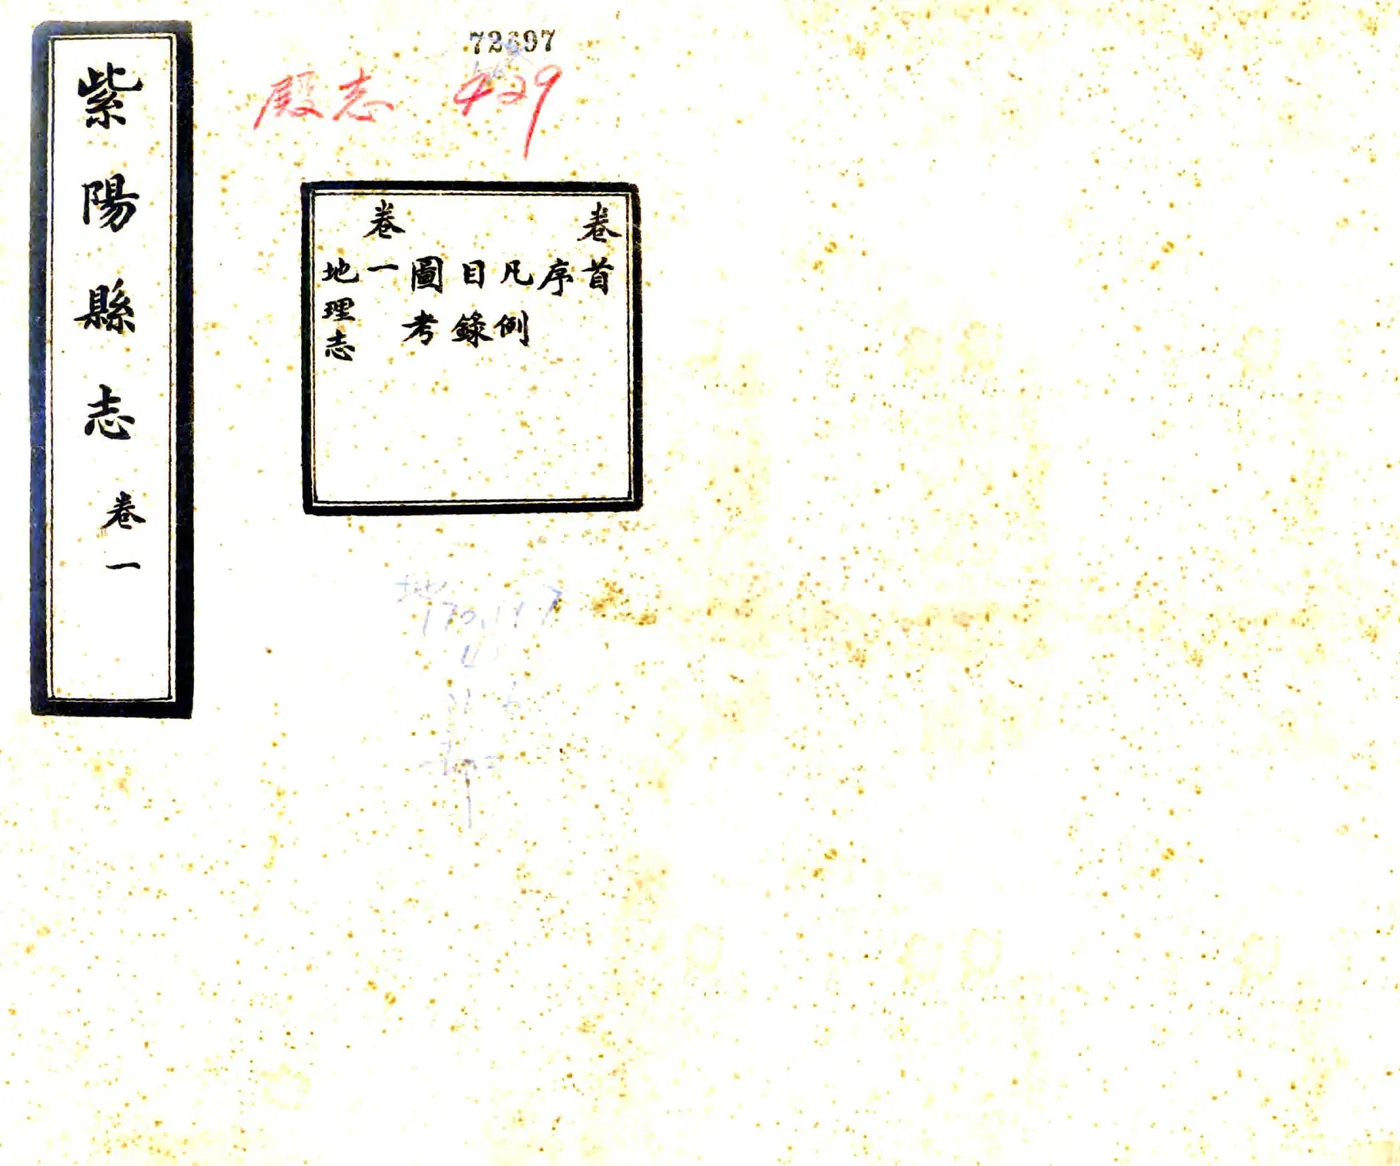 紫陽縣志 卷一
72697
殿志 429
卷首
序
凡例
目錄
圖考
卷一
地理志
地